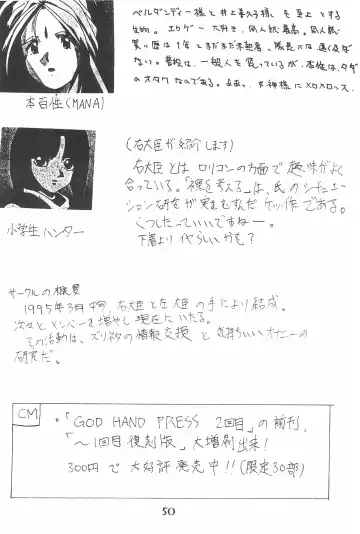 ベルダンディー様と井上喜久子様を至上とする
生物。エロゲー大好き、同人紙最高。同人紙
買い歴は1年とまだまだ未熟者、隊長には遠く及ば
ない。普段は、一般人を装っているが、本性はタダ
のオタクなのである。なお。女神様にメロメロッス。
本百姓(MANA)
(右大臣が紹介します)
右大臣とはロリコンの方面で趣味がよく
合っている。「裸を考える」は、氏のシチュエー
ション研究が実をむすんだケッ作である。
くつしたっていいですねー。
下着よりイヤらしいかも?
小学生ハンター
サークルの概要
1995年3月中旬、右大臣と左大臣の手により結成。
次々とメンバーを増やし現在にいたる。
その活動は、ズリネタの情報交換と気持ちいいオナニーの
研究だ。
CM
「GOD HAND PRESS 2回目」の前刊、
「〜1回目復刻版」大増刷出来!
300円で大好評発売中!!(限定30部)
50